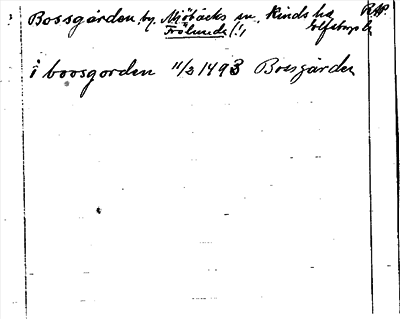 Bossgården, by, Mjöbäcks sn, Kinds hd RAP.
Frölunda (!) Elfsborgs l.
i boosgorden 11/3 1493 Bossgården